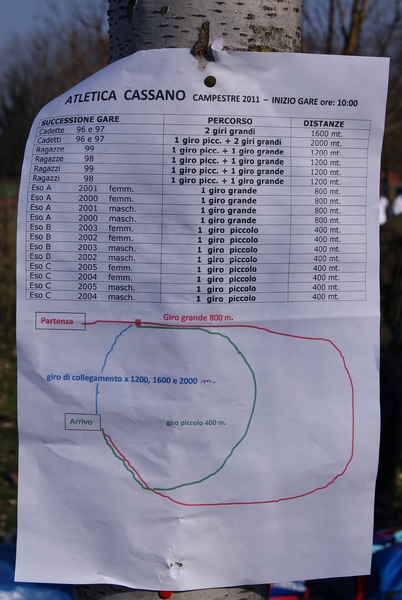 ATLETICA CASSANO CAMPESTRE 2011 – INIZIO GARE ore: 10:00
SUCCESSIONE GARE PERCORSO DISTANZE
Cadette 96 e 97 2 giri grandi 1600 mt.
Cadetti 96 e 97 1 giro picc. + 2 giri grandi 2000 mt.
Ragazze 99 1 giro picc. + 1 giro grande 1200 mt.
Ragazze 98 1 giro picc. + 1 giro grande 1200 mt.
Ragazzi 99 1 giro picc. + 1 giro grande 1200 mt.
Ragazzi 98 1 giro picc. + 1 giro grande 1200 mt.
Eso A 2001 femm. 1 giro grande 800 mt.
Eso A 2000 femm. 1 giro grande 800 mt.
Eso A 2001 masch. 1 giro grande 800 mt.
Eso A 2000 masch. 1 giro grande 800 mt.
Eso B 2003 femm. 1 giro piccolo 400 mt.
Eso B 2002 femm. 1 giro piccolo 400 mt.
Eso B 2003 masch. 1 giro piccolo 400 mt.
Eso B 2002 masch. 1 giro piccolo 400 mt.
Eso C 2005 femm. 1 giro piccolo 400 mt.
Eso C 2004 femm. 1 giro piccolo 400 mt.
Eso C 2005 masch. 1 giro piccolo 400 mt.
Eso C 2004 masch. 1 giro piccolo 400 mt.
Partenza Giro grande 800 m.
giro di collegamento x 1200, 1600 e 2000 m.
Arrivo giro piccolo 400 m.